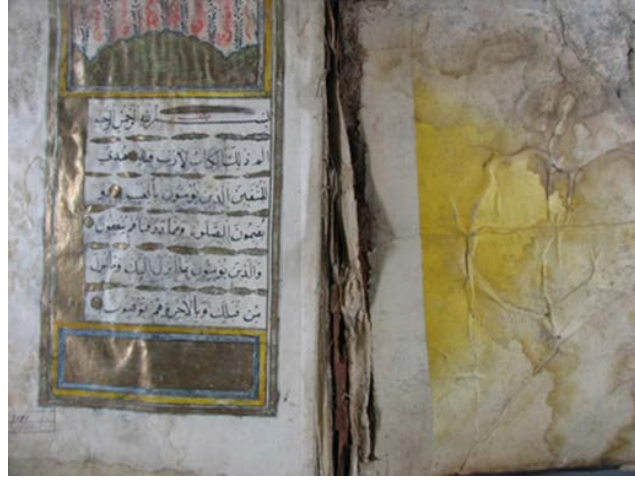 بسم الله الرحمن الرحيم
الم ذلك الكتاب لا ريب فيه هدى
للمتقين الذين يؤمنون بالغيب و
يقيمون الصلوة ومما رزقناهم ينفقون
والذين يؤمنون بما انزل اليك وما انزل
من قبلك وبالآخرة هم يوقنون